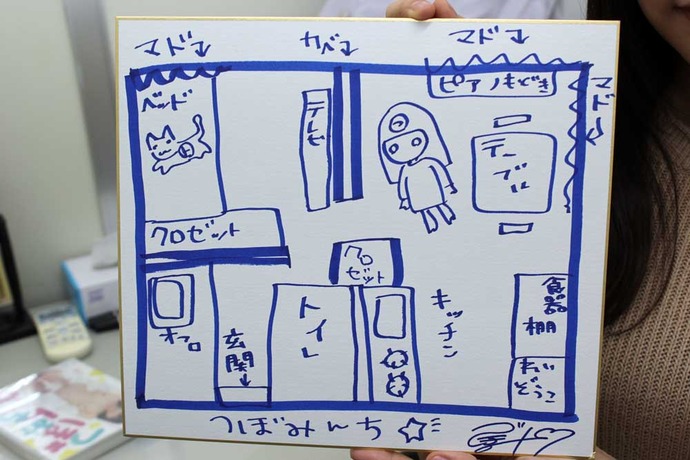 マド
カベ
マド
マド
ベッド
テレビ
ピアノもどき
テーブル
クロゼット
クロ
ゼット
オフロ
玄関
トイレ
キッチン
食器
棚
れい
ぞうこ
つぼみんち☆